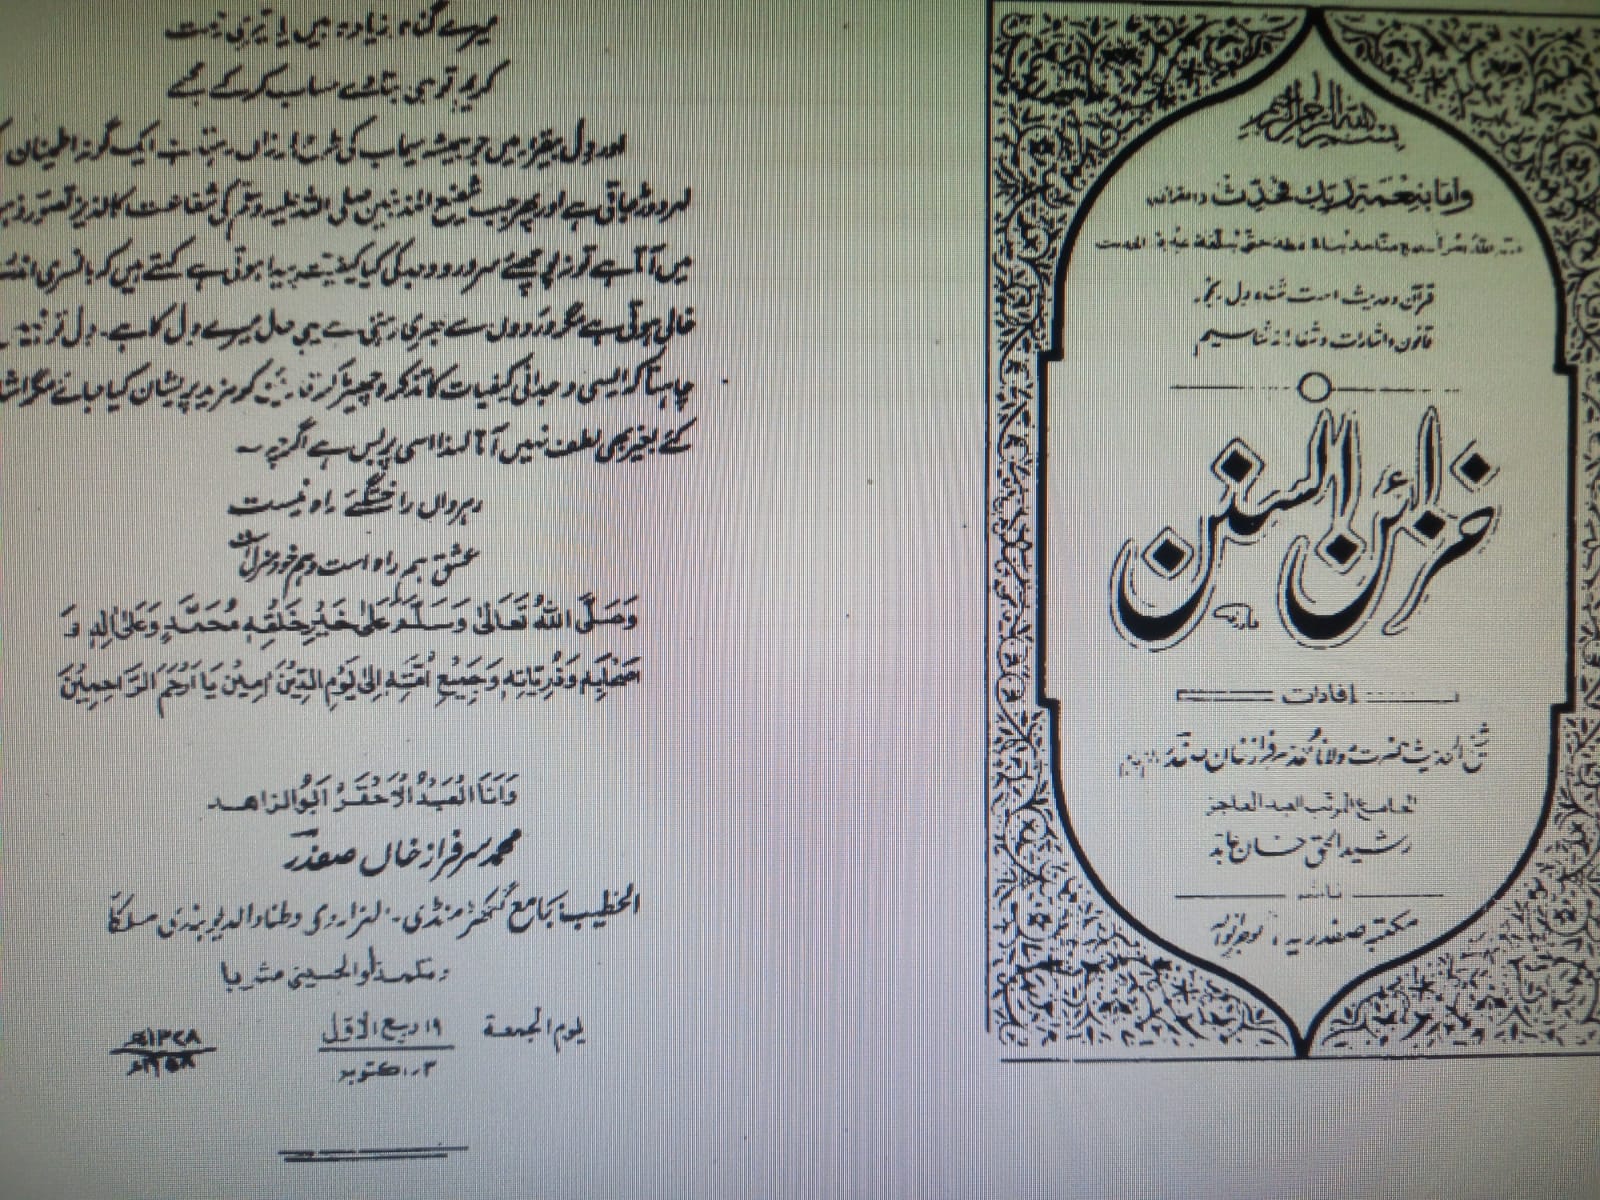 میرے گناہ زیادہ ہیں یا تیری رحمت
کریم تو ہی بتا دے حساب کر کے مجھے
اور دل بیقرار میں جو ہمیشہ سیماب کی طرح لرزاں رہتا ہے ایک گونہ اطمینان کی
لہر دوڑ جاتی ہے اور پھر جب شفیع المذنبین صلی اللہ علیہ وسلم کی شفاعت کا لذیذ تصور
میں آتا ہے تو نہ پوچھئے سرور و وجد کی کیا کیفیت پیدا ہوتی ہے کہتے ہیں کہ بانسری
خالی ہوتی ہے مگر دردوں سے بھری رہتی ہے یہی حال میرے دل کا ہے۔ دل تو نہیں
چاہتا کہ ایسی وجدانی کیفیات کا تذکرہ چھیڑ کر قارئین کو مزید پریشان کیا جائے مگر
کئے بغیر بھی لطف نہیں آتا لہذا اسی پر بس ہے اگرچہ ~
رہرواں را خستگئے راہ نیست
عشق ہم راہ است و ہم خود منزل است
وَصَلَّى اللّٰهُ تَعَالٰى وَسَلَّمَ عَلٰى خَيْرِ خَلْقِهٖ مُحَمَّدٍ وَعَلٰى اٰلِهٖ وَ
اَصْحَابِهٖ وَذُرِّيَّاتِهٖ وَجَمِيْعِ اُمَّتِهٖ اِلٰى يَوْمِ الدِّيْنِ اٰمِيْنَ يَا اَرْحَمَ الرَّاحِمِيْنَ
وَاَنَا الْعَبْدُ الْاَحْقَرُ اَبُو الزاهد
محمد سرفراز خاں صفدر
الخطیب بجامع گکھڑ منڈی۔ الہزاروی وطنا والدیوبندی مسلکاً
والحسینی مشربا
یوم الجمعۃ ۱۹ ربیع الاول
۳ اکتوبر
بسم الله الرحمن الرحيم
وَاَمَّا بِنِعْمَةِ رَبِّكَ فَحَدِّثْ
قرآن و حدیث است شفاء دل رنجور
قانون و اشارات و شفا را نہ شناسیم
خزائن السنن
افادات
شیخ الحدیث حضرت مولانا محمد سرفراز خان صفدر
الجامع المرتب العبد العاجز
رشید الحق خان عابد
ناشر
مکتبہ صفدریہ، گوجرانوالہ